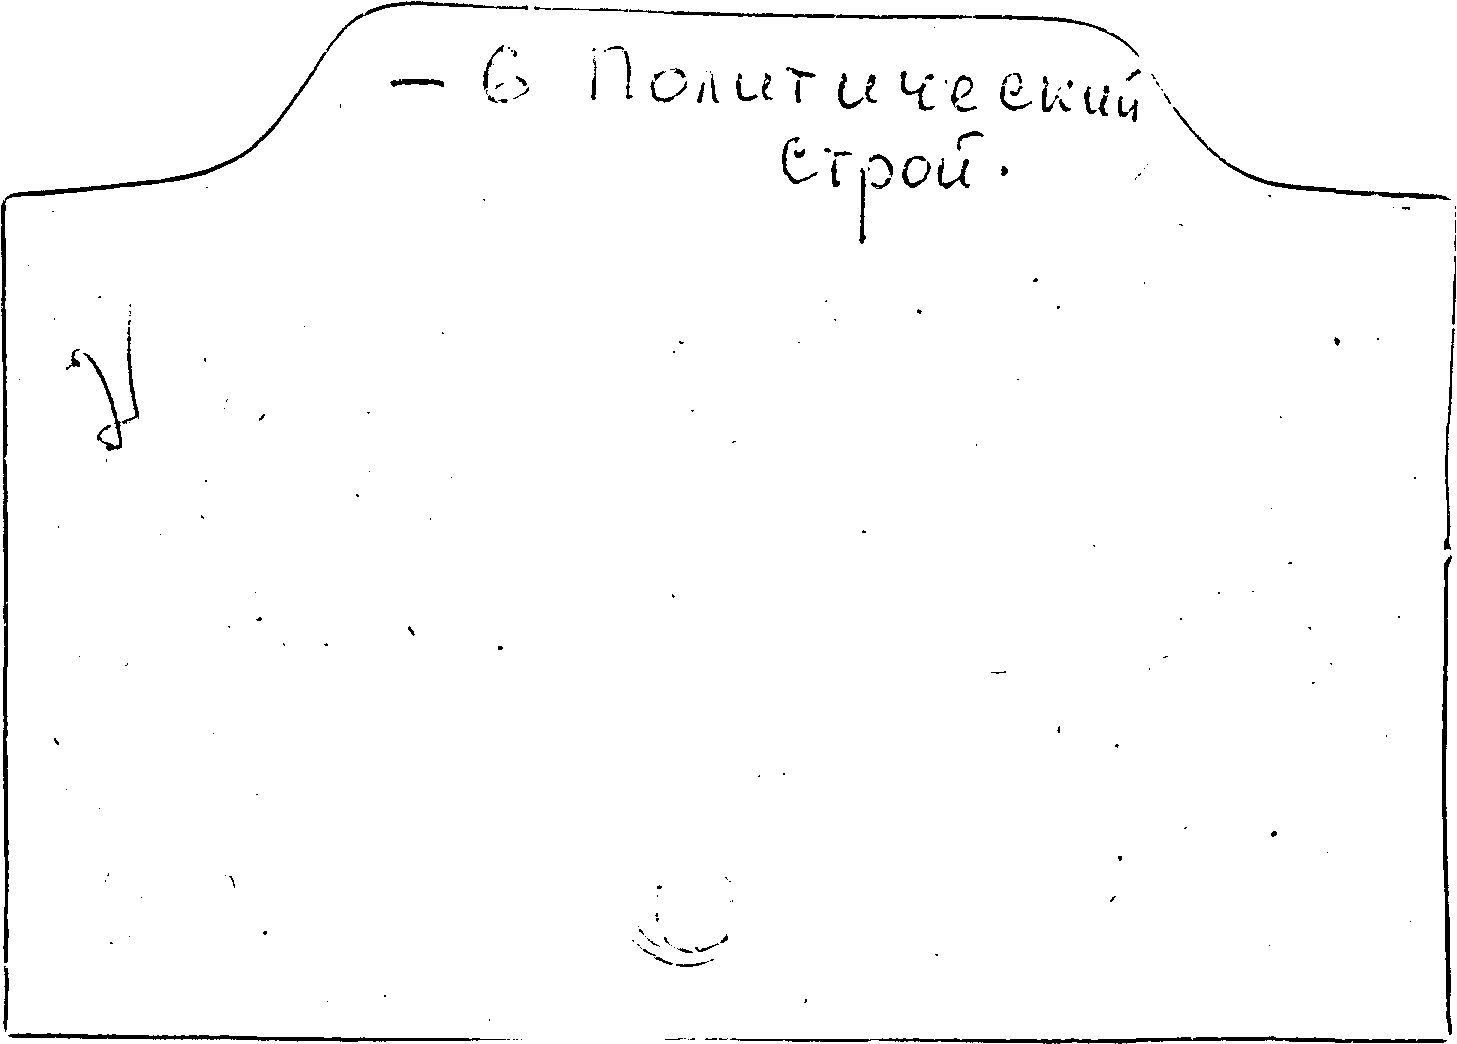 – 6 Политический
строй.